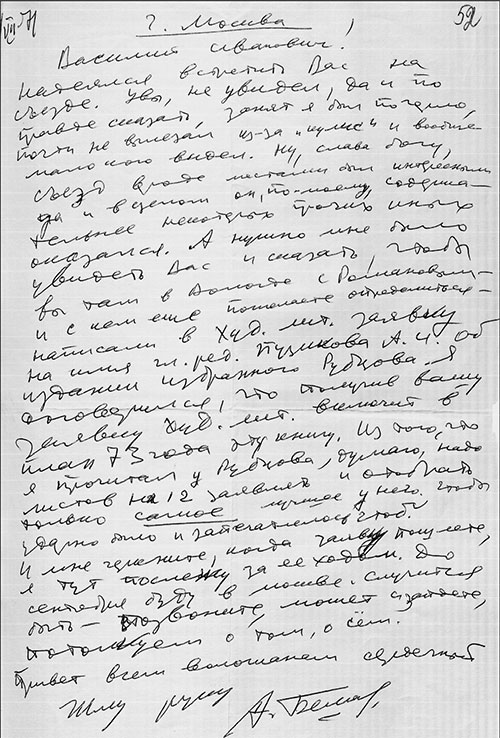 VII 71
г. Москва
52
Василий Иванович!
Надеялся встретить Вас на
съезде. Увы, не увидел, да и по
правде сказать, занят я был по горло,
почти не вылезал из-за "кулис" и вообще
мало кого видел. Ну, слава богу,
съезд вроде местами был интересным
да и в целом он, по-моему, содержа-
тельнее некоторых прочих иных
оказался. А нужно мне было
увидеть Вас и сказать, чтобы
вы там в Вологде с Романовым -
и с кем еще пожелаете определиться -
написали в Худ. лит. заявку
на имя гл. ред. Пузикова А. И. об
издании избранного Рубцова. Я
договорился, что получив вашу
заявку Худ. лит. включит в
план 73 года эту книгу. Из того, что
я прочитал у Рубцова, думаю, надо
листов на 12 заявлять и отобрать
только самое лучшее у него. Чтобы
ударно было и запечатлелось чтоб.
И мне черкните, когда заявку пошлете,
я тут послежу за ее ходом. До
сентября буду в Москве. Случится
быть - позвоните, может зайдете,
потолкуем о том, о сём.
Привет всем вологжанам сердечный
Жму руку